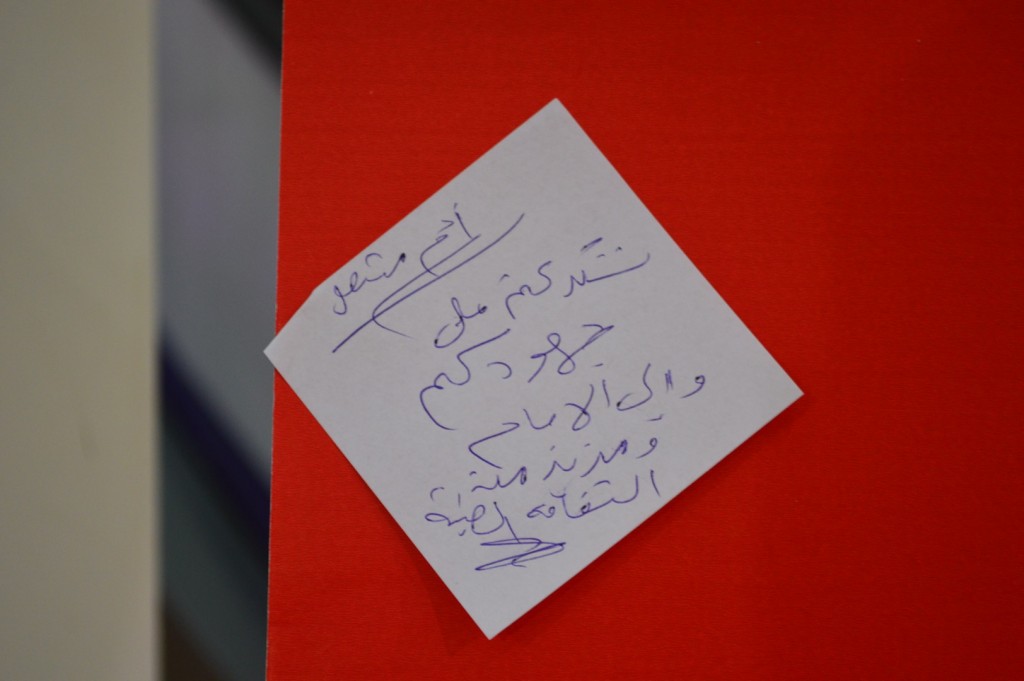 نشكركم على
جهودكم
والى الامام
ومزيد من
الثقافه الصحية
أم منتصر